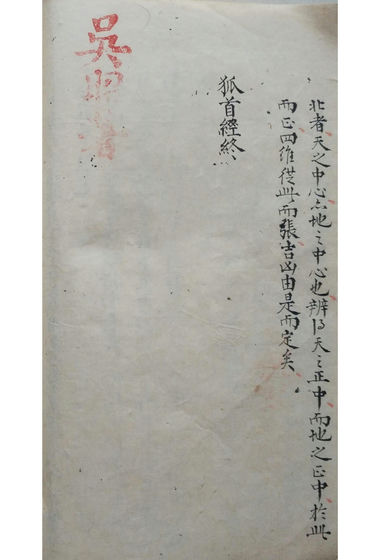 北者天之中心亦地之中心也辨得天之正中而地之正中於此
而正四維從此而張吉凶由是而定矣
狐首經終
吳